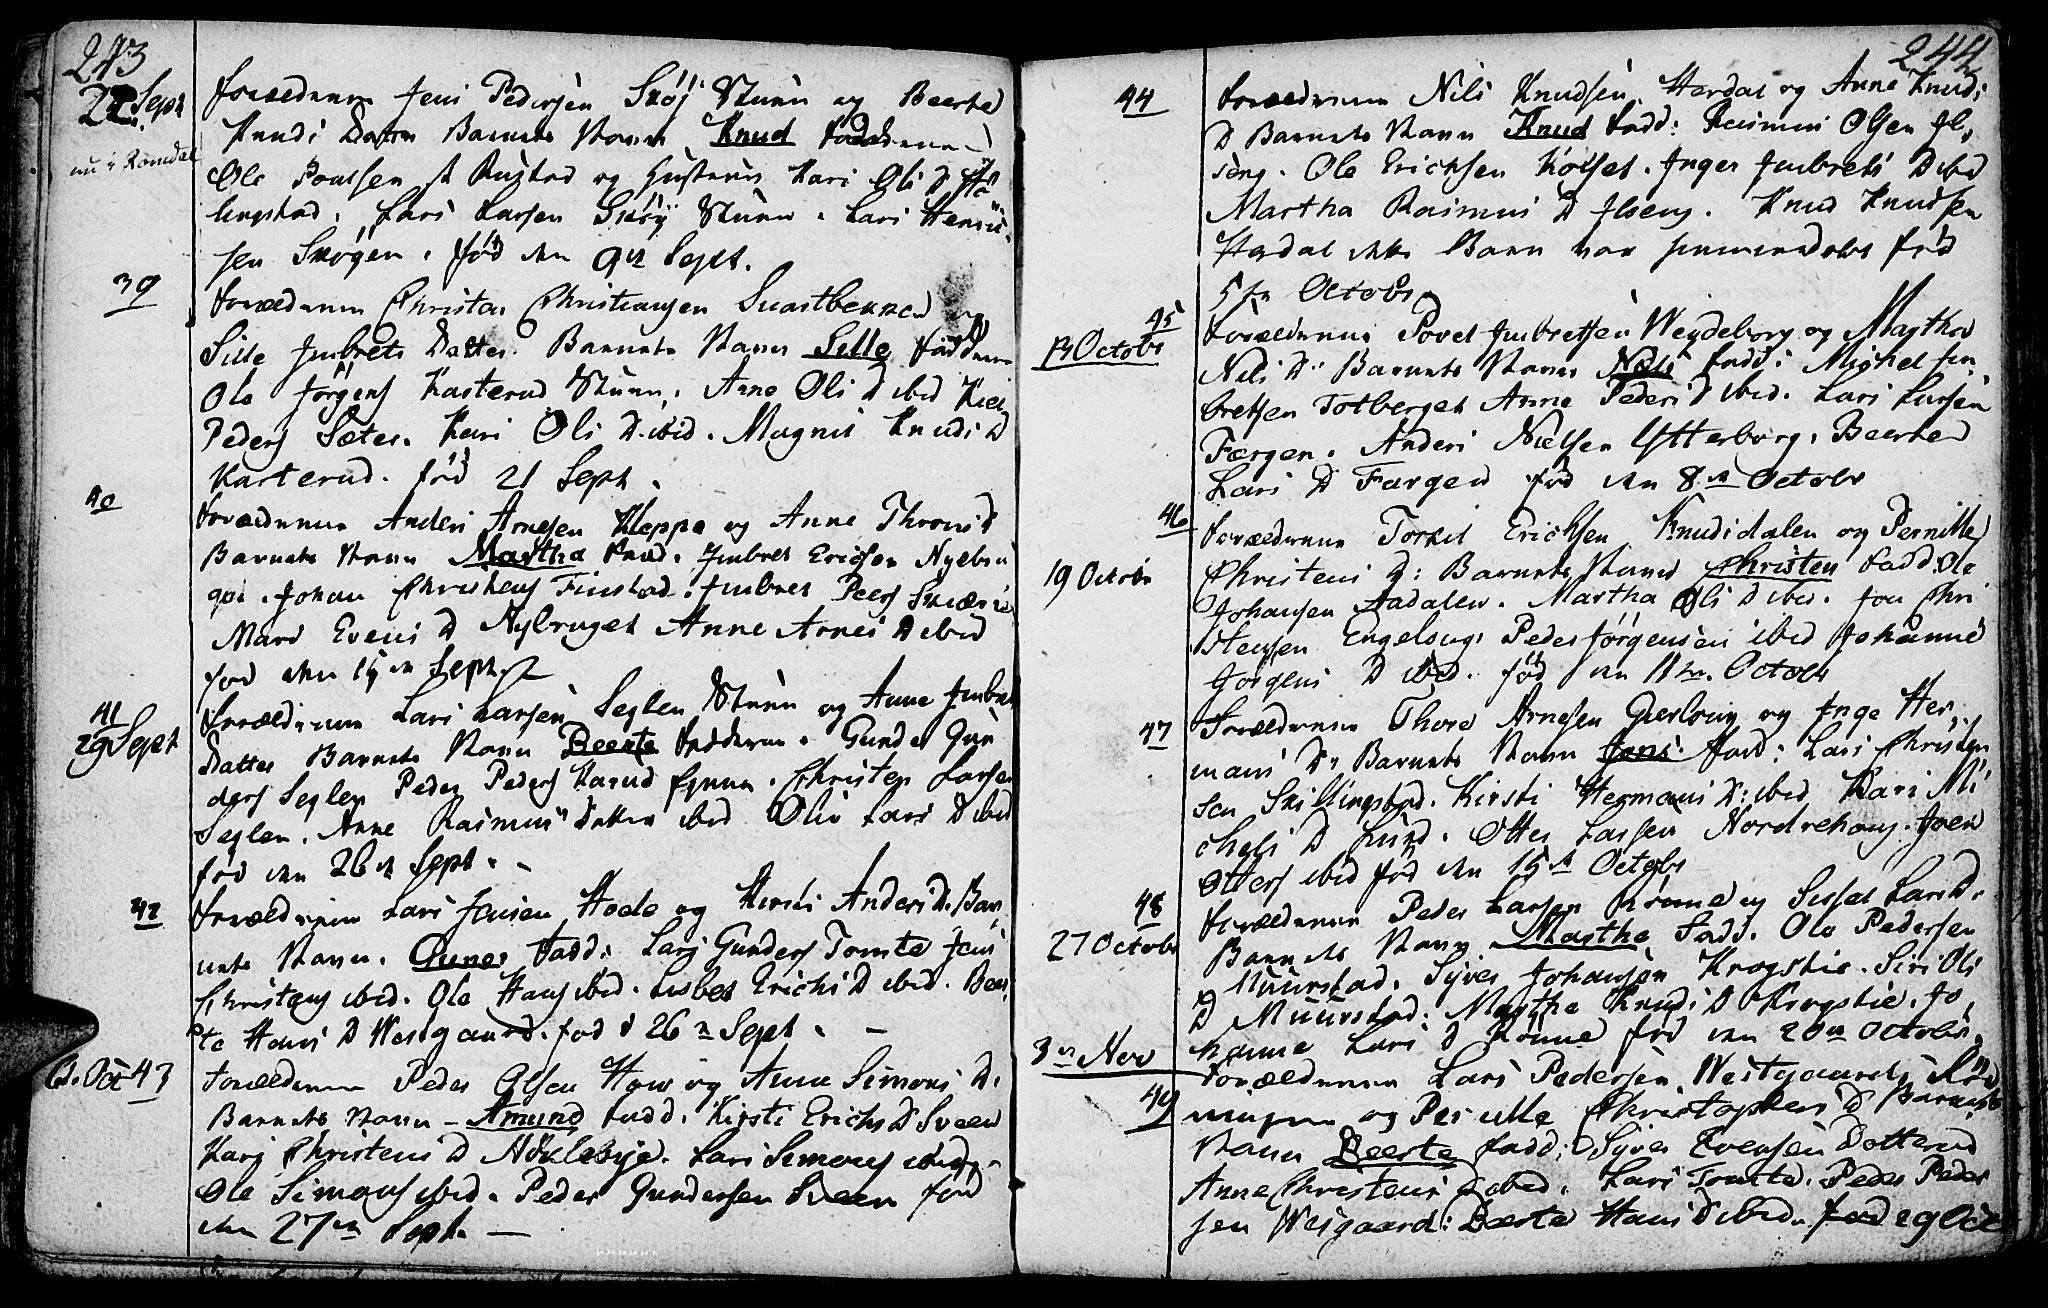 243
22 Sept
nu i Romdal
Forældrene Jens Pedersen Skøj Stuen og Beerte
Knuds Datter Barnets Navn Knud Faddere
Ole Poulsen Rustad og Hustrue Kari Ols D
lingstad. Lars Larsen Skøÿ Stuen. Lars
sen Skøgen. fød den 9de Sept.
39
Forældrene Christen Christiansen Suartbecken og
Sille Jmbrets Datter. Barnets Navn Sille Faddere
Ole Jørgens Kasterud Stuen. Anne Ols D ibid
Peders Sæter. Kari Ols D. ibid. Magnil Knuds D
Kasterud. fød 21 Sept.
40
Forældrene Anders Arnesen Kleppe og Anne Thrond D
Barnets Navn Martha Fadd. Jmbret Ericsen Nyebru
get. Johan Christens Finstad. Jmbret Peers
Mari Evens D Nybruget Anne Arnes D ibid
fød den 15de Sept
41
29 Sept
Forældrene Lars Larsen Seglen Stuen og Anne Jmbret
Datter Barnets Navn Beerte Fadderne. Gunder Gun
ders Seglen Peder Peders Harud. Christen Larsen
Seglen. Anne Rasmus Datter ibid Olia Lars D ibid
fød den 26de Sept.
42
Forældrene Lars Jensen Hoele og Kirsti Anders D. Bar,
nets Navn. Gunner Fadd: Lars Gunders Tomte Jens
Christens ibid. Ole Hans ibid. Lisbet Erichs D ibid. Beer
te Hans D Westgaard. fød d 26de Sept.
6. Oct 43
Forældrene Peder Olsen How og Anne Simons D.
Barnets Navn Amund Fadd. Kirsti Erichs D Sveen
Kari Christens D Nøklebye. Lars Simons ibid.
Ole Simons ibid. Peder Gundersen Sveen fød
den 27de Sept.
244
44
Forældrene Nils Knudsen Herdal og Anne Knuds
D Barnets Navn Knud Fadd: Rasmus Olsen Jl,
seng. Ole Erichsen Kolset. Jnger Jmbrets D ibid
Martha Rasmus D Jlseng. Knud Knudsen
Herdal dette Barn var hiemmedøbt fød
5te Octobr
45
13 Octobr
Forældrene Povel Jmbretsen Weydeborg og Martha
Nils D. Barnets Navn Nels Fadd: Michel Jm,
bretsen Totberget Anne Peders D ibid. Lars Larsen
Færgen. Anders Nielsen Ytterborg. Beerte
Lars D Færgen fød den 8de Octobr
46
19 Octobr
Forældrene Torkil Erichsen Knudsdalen og Pernille
Christens D: Barnets Navn Christen Fadd: Ole
Johansen Aadalen. Martha Ols D ibid. Jon Chri
stensen Engelaug. Peder Jørgensen ibid Johanne
Jørgens D ibid. fød den 11te Octobr
47
Forældrene Thore Arnesen Gierlaug og Jnge Her,
mans D: Barnets Navn Jens Fadd: Lars Christen
sen Skillingstad. Kirsti Hermans D: ibid Kari Mi
chels D Lund. Otter Larsen Nordrehoug. Joen
Otters ibid fød den 15de Octobr
48
27 Octobr
Forældrene Peder Larsen Rønne og Sissel Lars D.
Barnets Navn Marthe Fadd. Ole Pedersen
Muurstad. Syver Johansen Krogstie. Siri Ols
D Muurstad. Marthe Knuds D Krogstie. Jo,
hanne Lars D Rønne fød den 20de Octobr.
3de Nov
49
Forældrene Lars Pedersen Westgaards Rød
ningen og Pernille Christophers D Barnets
Navn Beerte Fadd: Syver Evensen Dotterud
Anne Christens D ibid. Lars Tomte. Peder Peder
sen Wesgaard: Beerte Hans D ibid. fød 29 Oct